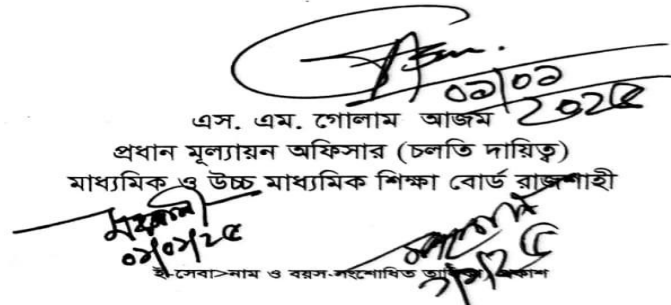 ০১|০১
২০২৫
এস. এম. গোলাম আজম
প্রধান মূল্যায়ন অফিসার (চলতি দায়িত্ব)
মাধ্যমিক ও উচ্চ মাধ্যমিক শিক্ষা বোর্ড রাজশাহী
০১/০১/২৫
১/১/২৫
ই-সেবা>নাম ও বয়স-সংশোধিত প্রকাশ